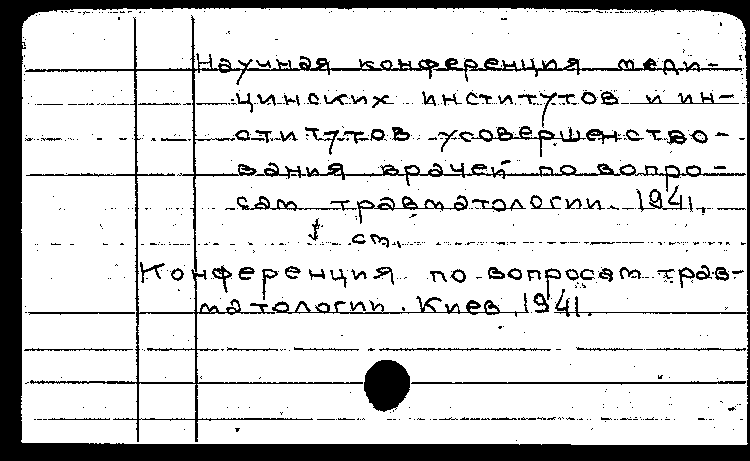 Научная конференция меди-
цинских институтов и ин-
ститутов усовершенство-
вания врачей по вопро-
сам травматологии. 1941,
см.
Конференция по вопросам трав-
матологии. Киев, 1941.